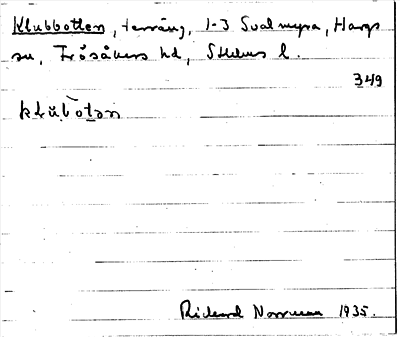 Klubbotten, terräng, 1-3 Svalmyra, Hargs
sn, Frösåkers hd, Sthlms l.
349
klŭbotən
Rickard Norrman 1935.